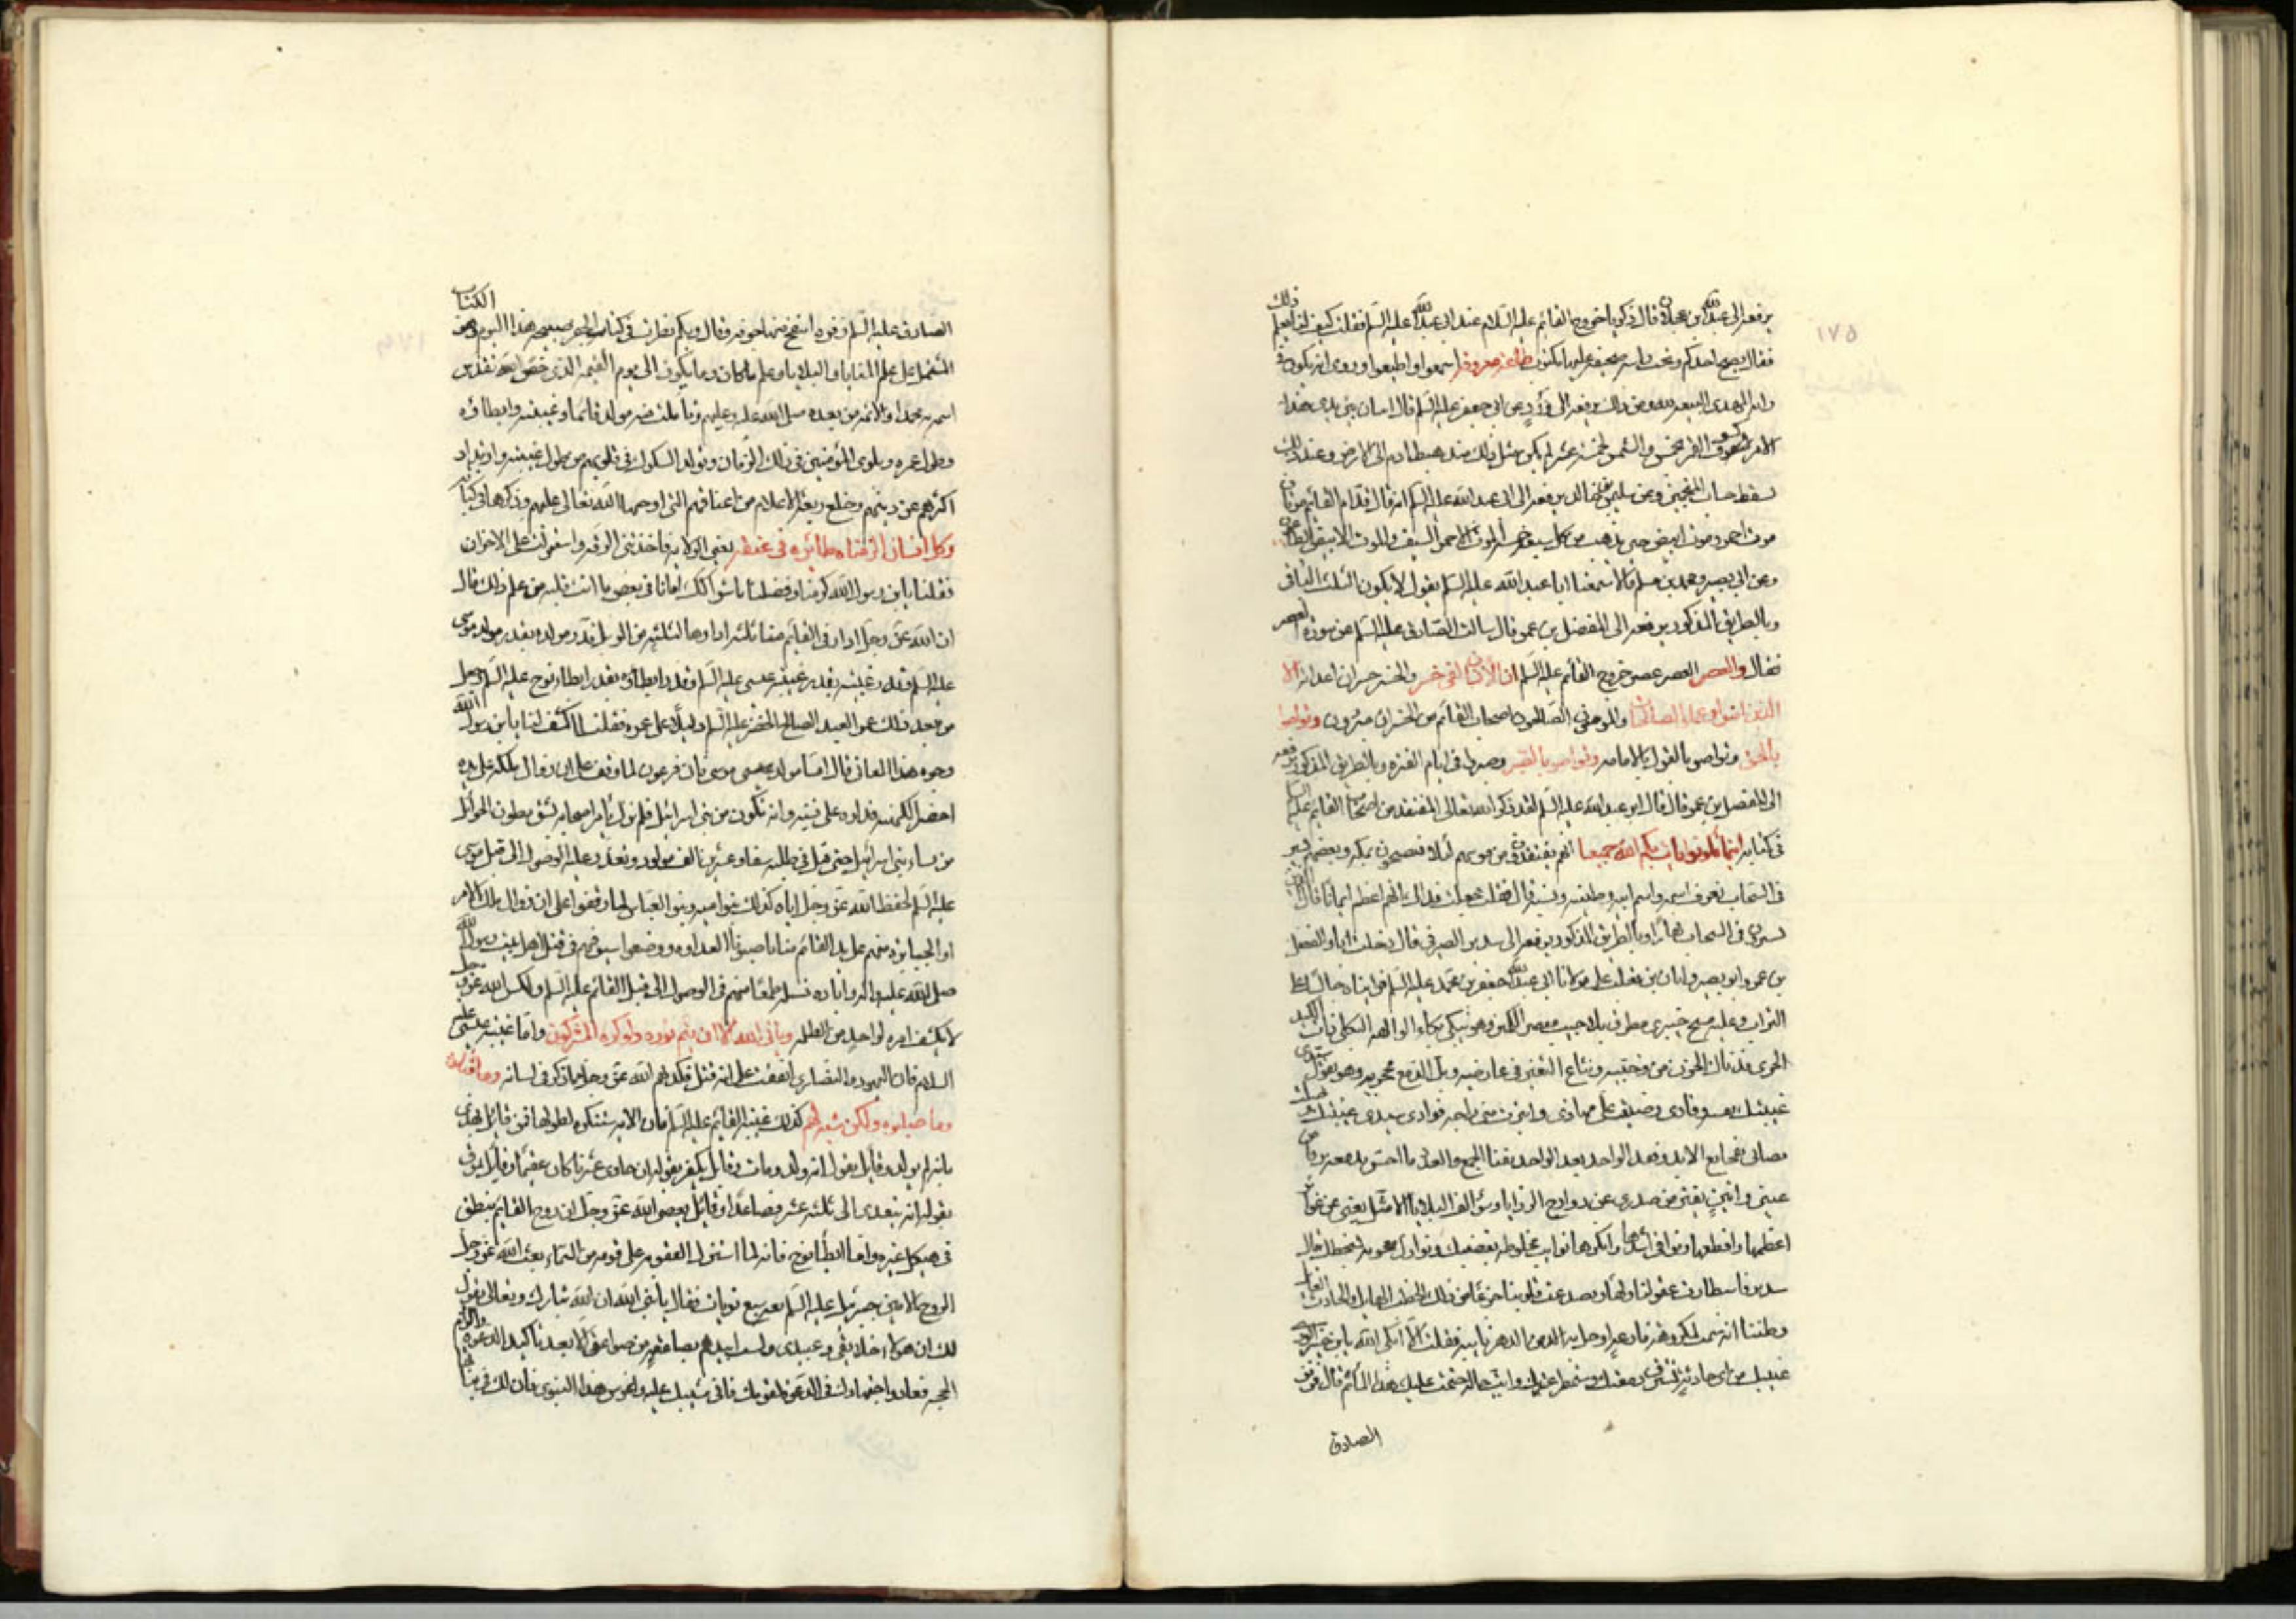 ١٧٥
يرفعه الى عبدالله بن عجلان قال ذكرنا خروج القائم عليه السلام عند ابى عبدالله عليه السلم فقلت كيف لنا نعلم ذلك
فقال يصبح احدكم وتحت راسه صحيفة عليها مكتوب طاعة معروفة اسمعوا واطيعوا وروى انه يكون فى
راية المهدى البيعة لله ومن ذلك يرفعه الى عن ابى جعفر عليه السلم قال اثنان بين يدى هذا
الامر خسوف القمر لخمس والشمس لخمسة عشر لم يكن مثل ذلك منذ هبط ادم الى الارض وعند ذلك
يسقط حساب المنجمين وعن سليمن بن خالد يرفعه الى ابى عبد الله عليه السلم انه قال قدام القائم موتان
موت احمر وموت ابيض حتى يذهب من كل سبعة خمسة الموت الاحمر السيف والموت الابيض الطاعون
وعن ابى بصير ومحمد بن مسلم قالا سمعنا ابا عبد الله عليه السلم يقول لا يكون الثلث الباقى
وبالطريق المذكور يرفعه الى المفضل بن عمر قال سالت الصادق عليه السلم عن سورة العصر
فقال والعصر العصر عصر خروج القائم عليه السلم ان الانسان لفى خسر والخسر خسران اعدائه الا
الذين امنوا وعملوا الصالحات والمومنون الصالحون اصحاب القائم من الخسران مبرؤن وتواصوا
بالحق وتواصوا بالقول بالامامه وتواصوا بالصبر وصبروا فى ايام الفترة وبالطريق المذكور يرفعه
الى المفضل بن عمر قال قال ابو عبد الله عليه السلم لقد ذكر الله تعالى المفتقدين من اصحاب القائم عليه السلم
فى كتابه اينما تكونوا يات بكم الله جميعا انهم يفتقدون من فرشهم ليلا فيصبحون بمكه وبعضهم يسير
فى السحاب نعرف اسمه واسم ابيه وحليته ونسبه قال فقلت جعلت فداك ايهم اعظم ايمانا قال الذين
يسيرون فى السحاب نهارا وبالطريق المذكور يرفعه الى سدير الصيرفى قال دخلت انا والمفضل
بن عمر وابو بصير وابان بن تغلب على مولانا ابى عبدالله جعفر بن محمد عليه السلم فرايناه جالسا على
التراب وعليه مسح خيبرى مطرف بلا جيب مقصر الكمين وهو يبكى بكاء الوالهه الثكلى ذات الكبد
الحرى قد نال الحزن من وجنتيه وشاع التغير فى عارضيه وبل الدمع محجريه وهو يقول سيدى
غيبتك نفت رقادى وضيقت على مهادى وابتزت منى راحة فوادى سيدى غيبتك اوصلت
مصابى بفجايع الابد وفقد الواحد بعد الواحد بفناء الجمع والعدد فما احس بدمعة ترقا من
عينى وانين يفتر من صدرى عن دوارج الرزايا وسوالف البلايا الا مثل بعينى عن عواير
اعظمها وافظعها وتراقى اشدها وانكرها نوايب مخلوطه بغضبك ونوازل معجونه بسخطك قال
سدير فاستطارت عقولنا ولها وتصدعت قلوبنا جزعا من ذلك الخطب الهايل والحادث الغايل
وظننا انه سمت لمكروهه قارعه او حلت به من الدهر بايقه فقلت لا ابكى الله يابن خير الورى
عينيك من اى حادثة تستنزف دمعتك وتستمطر عبرتك واية حالة حتمت عليك هذا الماتم قال فزفر
الصادق
الصادق عليه السلم زفرة انتفخ منها جوفه وقال ويكم نظرت فى كتاب الجفر صبيحة هذا اليوم وهو الكتاب
المشتمل على علم المنايا والبلايا وعلم ما كان وما يكون الى يوم القيمة الذى خص الله تقدس
اسمه به محمدا والائمه من بعده صلى الله عليه وعليهم وتاملت فيه مولد قائمنا وغيبته وابطاؤه
وطول عمره وبلوى المؤمنين فى ذلك الزمان وتولد الشكوك فى قلوبهم من طول غيبته وارتداد
اكثرهم عن دينهم وخلع ربقة الاسلام من اعناقهم التى اوجبها الله تعالى عليهم وذكرها فى كتابه
وكل انسان الزمناه طائره فى عنقه يعنى الولايه فاخذتنى الرقه واستولت على الاحزان
فقلنا يابن رسول الله كرمنا وفضلنا باشراكك ايانا فى بعض ما انت تعلمه من علم ذلك قال
ان الله عز وجل ادار فى القائم منا ثلثه ادارها لثلثة من الرسل قدر مولده بقدر مولد موسى
عليه السلم وقدر غيبته بقدر غيبة عيسى عليه السلم وقدر ابطاؤه بقدر ابطاء نوح عليه السلم وجعل
من بعد ذلك عمر العبد الصالح الخضر عليه السلم دليلا على عمره فقلت اكشف لنا يابن رسول الله
وجوه هذا المعانى قال اما مولد موسى فان فرعون لما وقف على ان زوال ملكه على يده
احضر الكهنة فدلوه على نسبه وانه يكون من بنى اسرائيل فلم يزل يامر اصحابه بشق بطون الحوامل
من نساء بنى اسرائيل حتى قتل فى طلبه نيفا وعشرين الف مولود وتعذر عليه الوصول الى قتل موسى
عليه السلم لحفظ الله عز وجل اياه كذلك بنو اميه وبنو العباس لما وقفوا على ان زوال ملك الامر
او الجبابره منهم على يد القائم منا ناصبونا العداوه ووضعوا سيوفهم فى قتل اهل بيت رسول الله
صلى الله عليه واله وابادة نسله طمعا منهم فى الوصول الى قتل القائم عليه السلم ولكن الله عز وجل
لا يكشف امره لواحد من الظلمه ويابى الله الا ان يتم نوره ولو كره المشركون واما غيبة عيسى عليه
السلام فان اليهود والنصارى اتفقت على انه قتل فكذبهم الله عز وجل بما ذكر فى لسانه وما قتلوه
وما صلبوه ولكن شبه لهم كذلك غيبة القائم عليه السلم فان الامه ستنكره لطولها فمن قائل يهذى
بانه لم يولد وقايل يقول انه ولد ومات وقايل يكفر بقوله ان حادى عشرنا كان عقيما وقايل يمرق
بقوله انه يتعدى الى ثلثة عشر فصاعدا وقائل يعصى الله عز وجل ان روح القايم ينطق
فى هيكل غيره واما ابطاء نوح فانه لما استنزل العقوبه على قومه من السماء بعث الله عز وجل
الروح الامين جبرئيل عليه السلم معه سبع نويات فقال يا نبى الله ان الله تبارك وتعالى يقول
لك ان هؤلاء خلايقى وعبيدى ولست ابيدهم بصاعقة من صواعقى الا بعد تاكيد الدعوة والزام
الحجه فعاود اجتهادك فى الدعوة لقومك فانى مثيبك عليه واغرس هذا النوى فان لك فى نباتها